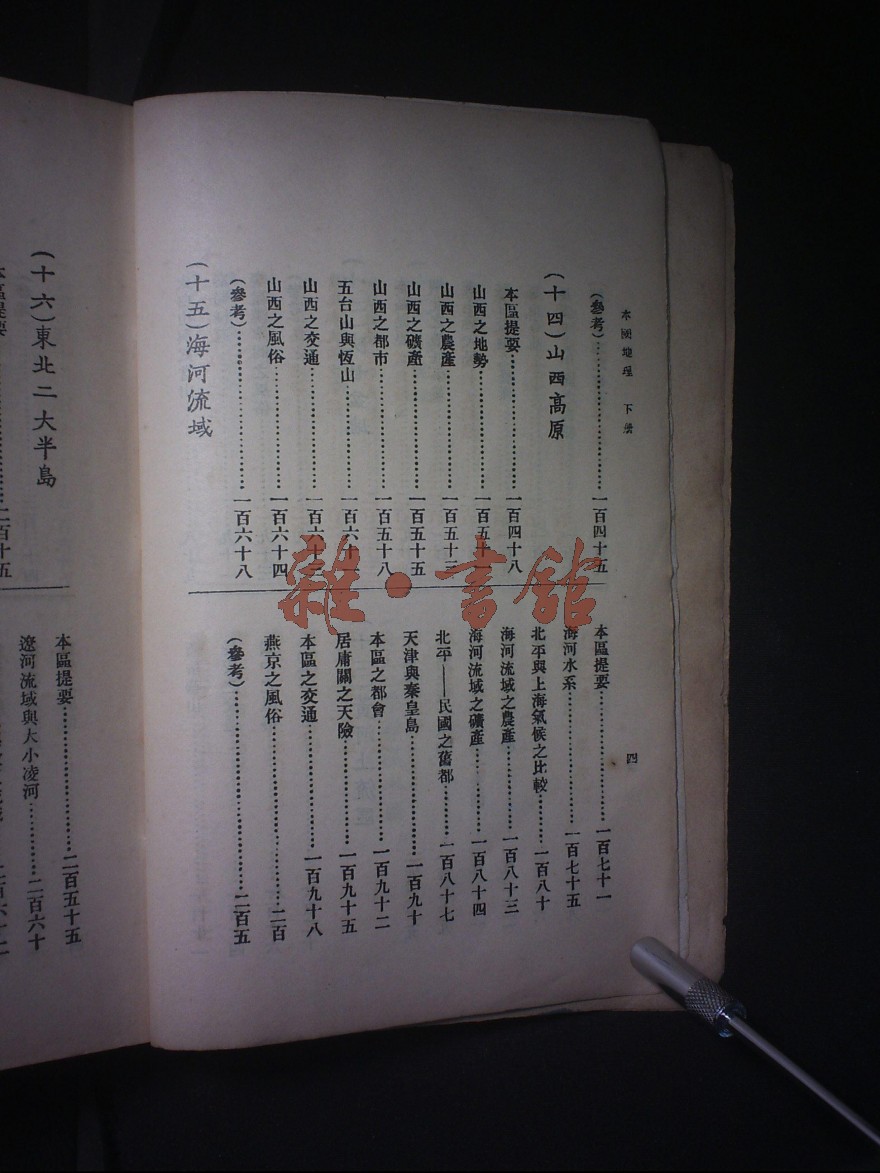 本國地理 下册
四
(參考)………一百四十五
(十四)山西高原
本區提要………一百四十八
山西之地勢………一百五十
山西之農產………一百五十三
山西之礦產………一百五十五
山西之都市………一百五十八
五台山與恆山………一百六十
山西之交通………一百六十
山西之風俗………一百六十四
(參考)………一百六十八
(十五)海河流域
本區提要………一百七十一
海河水系………一百七十五
北平與上海氣候之比較………一百八十
海河流域之農產………一百八十三
海河流域之礦產………一百八十四
北平——民國之舊都………一百八十七
天津與秦皇島………一百九十
本區之都會………一百九十二
居庸關之天險………一百九十五
本區之交通………一百九十八
燕京之風俗………二百
(參考)………二百五
(十六)東北二大半島
本區提要………二百十五
本區提要………二百五十五
遼河流域與大小凌河………二百六十
雜·書館